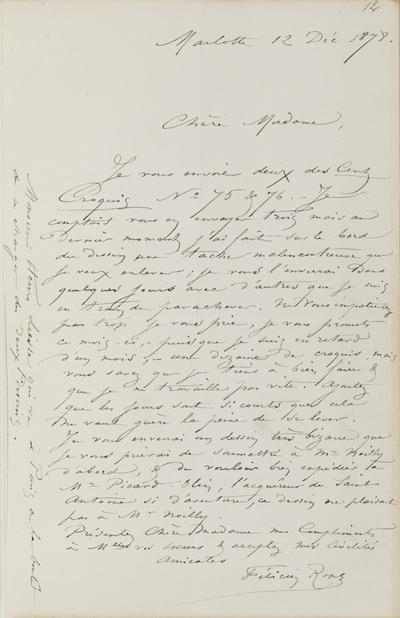 12
Marlotte 12 Déc 1878.
Chère Madame,
Je vous envoie deux des Cent
Croquis Nos 75 & 76. – Je
comptais vous en envoyer trois mais au
dernier moment j'ai fait sur le bord
du dessin une tache malencontreuse que
je veux enlever ; je vous l'enverrai dans
quelques jours avec d'autres que je suis
en train de parachever. Ne vous impatientez
pas trop, je vous prie, je vous promets
ce mois-ci, puisque je suis en retard
d'un mois, – une dizaine de croquis, mais
vous savez que je tiens à bien faire &
que je ne travaille pas vite. Ajoutez
que les jours sont si courts que cela
ne vaut guère la peine de se lever.
Je vous enverrai un dessin très bizarre que
je vous prierai de soumettre à Mr Noilly
d'abord, & de vouloir bien expédier, à
Mr Picard. , l'acquéreur de Saint
Antoine si d'aventure, ce dessin ne plaisait
pas à Mr Noilly.
Présentez Chère Madame mes Compliments
à Melles vos sœurs & acceptez mes Civilités
Amicales
Félicien Rops
Monsieur Henri qui va à Paris a la bonté
de se charger de deux dessins.